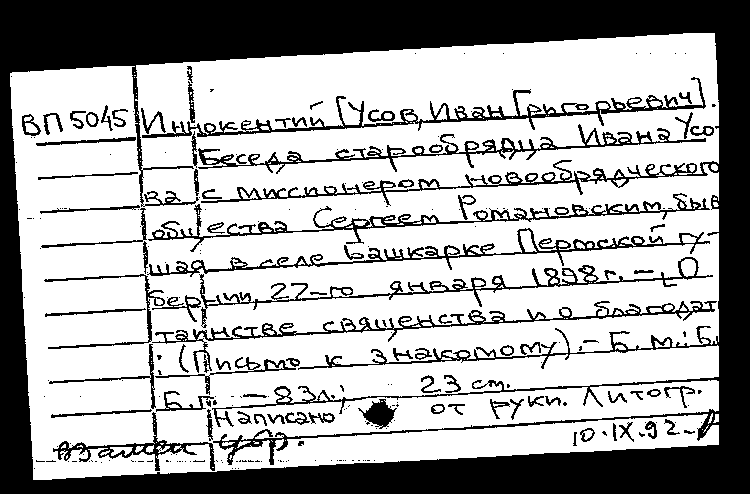 ВП 5045 Иннокентий [Усов, Иван Григорьевич].
Беседа старообрядца Ивана Усо-
ва с миссионером новообрядческого
общества Сергеем Романовским, быв
шая в селе Башкарке Пермской гу-
бернии, 27-го января 1898г. - О
таинстве священства и о благодат
: (Письмо к знакомому). - Б.м.: Б.
Б.г. - 83л.; 23 см.
Написано от руки. Литогр.
взамен 10.IX.92